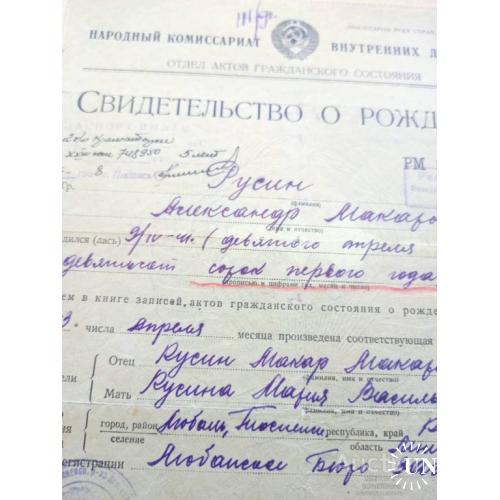 НАРОДНЫЙ КОМИССАРИАТ ВНУТРЕННИХ Д
ОТДЕЛ АКТОВ ГРАЖДАНСКОГО СОСТОЯНИЯ
СВИДЕТЕЛЬСТВО О РОЖД
748950 5 лет
РМ
Гр. Русин
(фамилия)
Александр Макаро
(имя и отчество)
дился (лась) 9/IV-41. (девятого апреля
девятьсот сорок первого года
(прописью и цифрами год, месяц и число)
ем в книге записей актов гражданского состояния о рожде
3. числа Апреля месяца произведена соответствующая
Отец Русин Макар Макаро
(фамилия, имя и отчество)
ели
Мать Русина Мария Василь
(фамилия, имя и отчество)
город, район Любань, республика, край
селение область
егистрации Любанское Бюро
UN